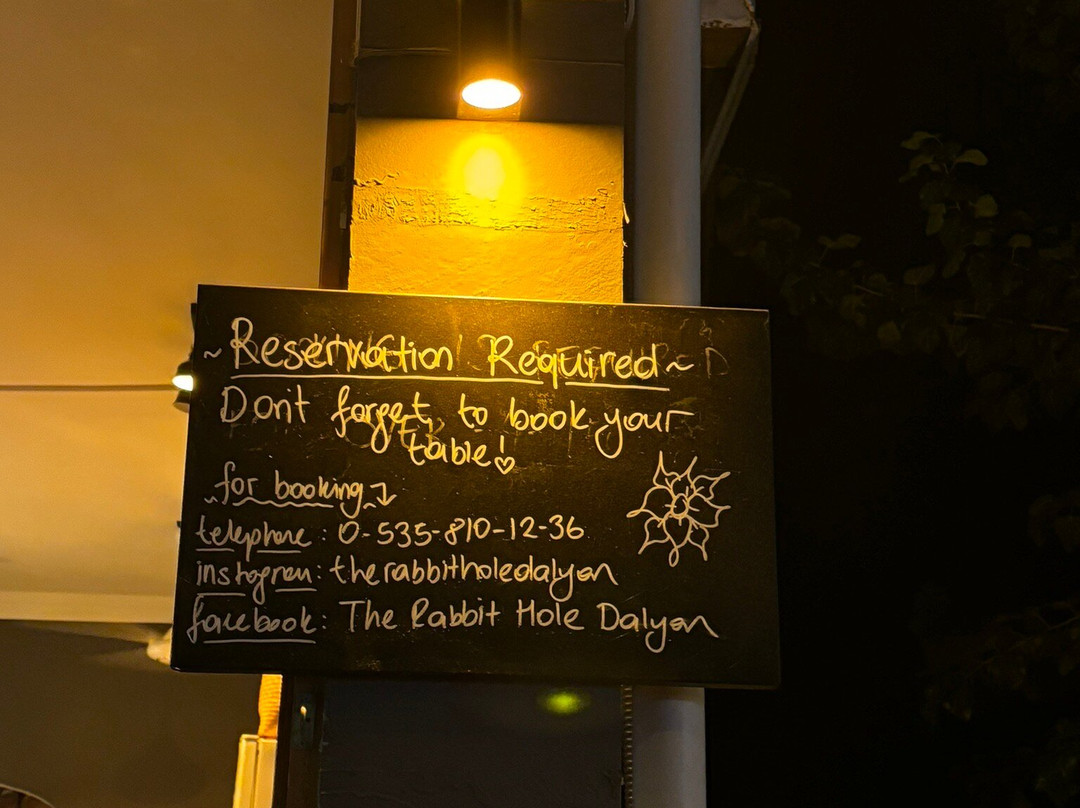 ~ Reservation Required ~
Dont forget to book your
table!
for booking
telephone: 0-535-810-12-36
instagram: therabbitholedalyan
facebook: The Rabbit Hole Dalyan